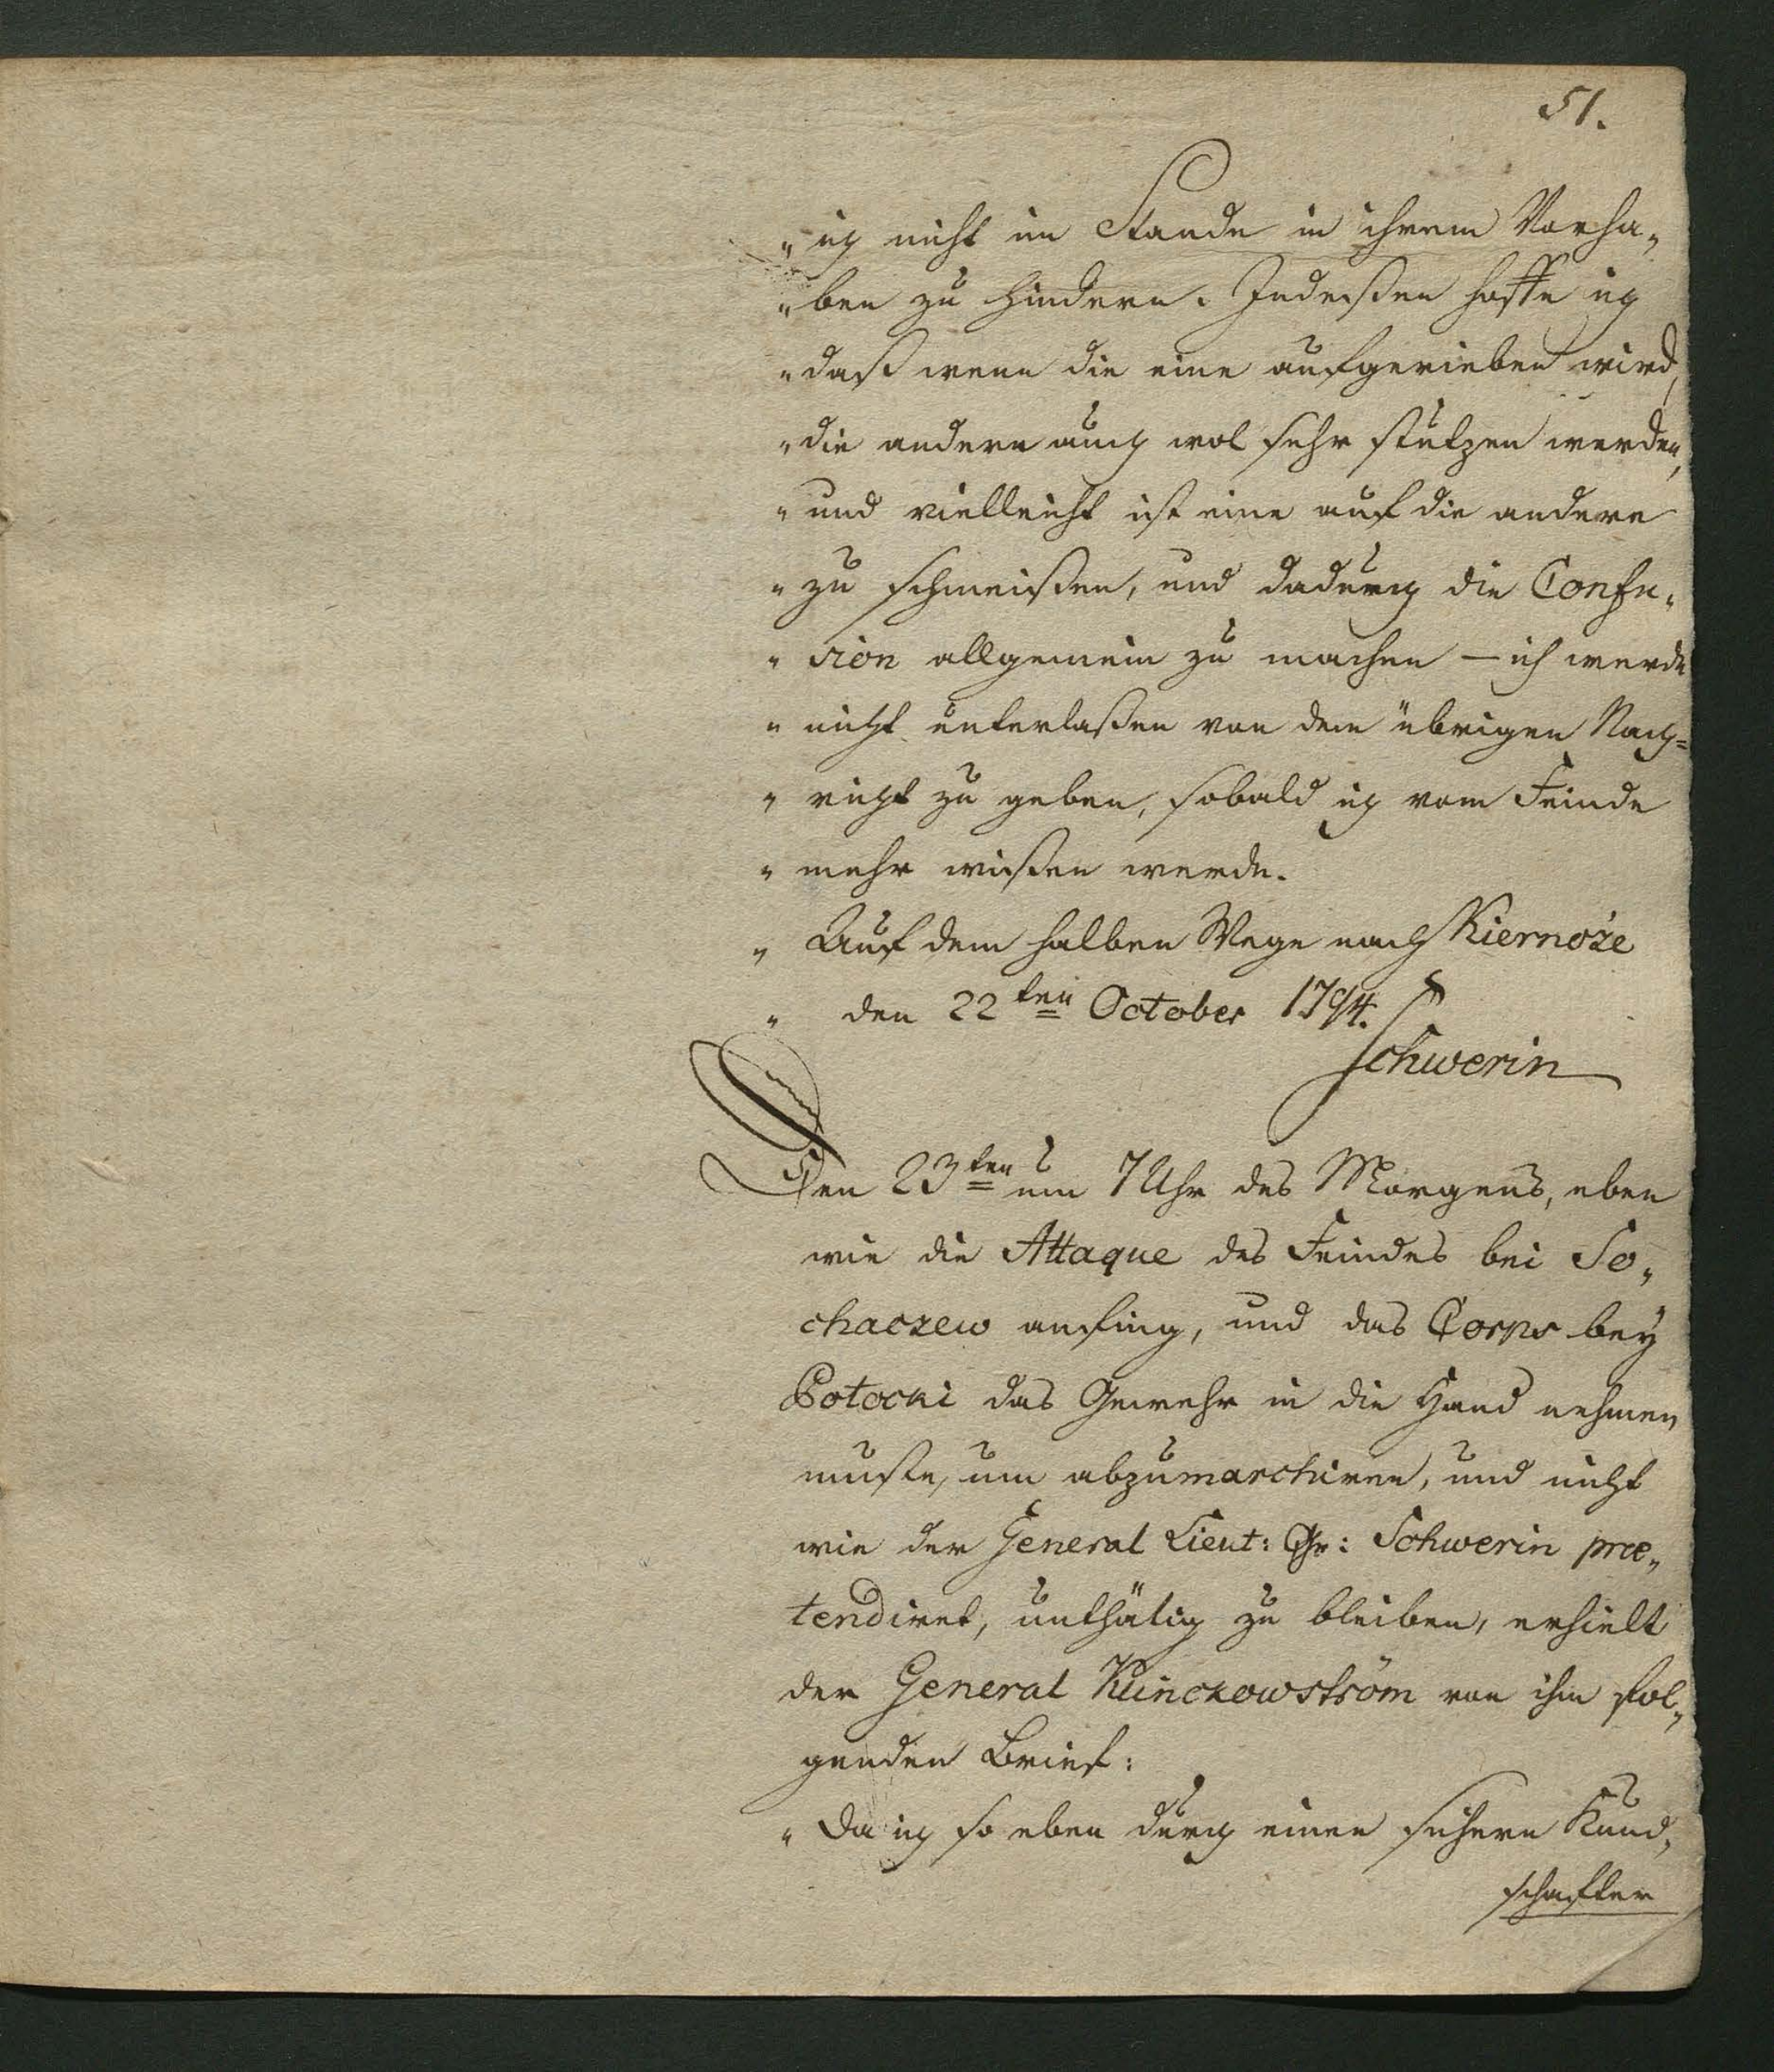 51.
„ ich nicht im Stande in ihrem Vorha„
„ ben zu hindern. Indeßen hoffe ich
„ daß wenn die eine aufgerieben wird,
„ die andern auch wol sehr stutzen werden,
„ und vielleicht ist eine auf die andere
„ zu schmeißen, und dadurch die Confu„
„ sion allgemein zu machen – ich werde
„ nicht unterlaßen von dem übrigen Nach=
„ richt zu geben, sobald ich vom Feinde
„ mehr wißen werde.
„ Auf dem halben Wege nach Kiernoże
„ den 22ten October 1794.
Schwerin
Den 23ten um 7 Uhr des Morgens, eben
wie die Attaque des Feindes bei So„
chaczew anfing, und das Corps bey
Potocki das Gewehr in die Hand nehmen
muste, um abzumarchiren, und nicht
wie der General Lieut: Gr: Schwerin præ„
tendiret, unthätig zu bleiben, erhielt
der General Klinckowström von ihm fol„
genden Brief:
„ Da ich so eben durch einen sichern Kund„
schafter